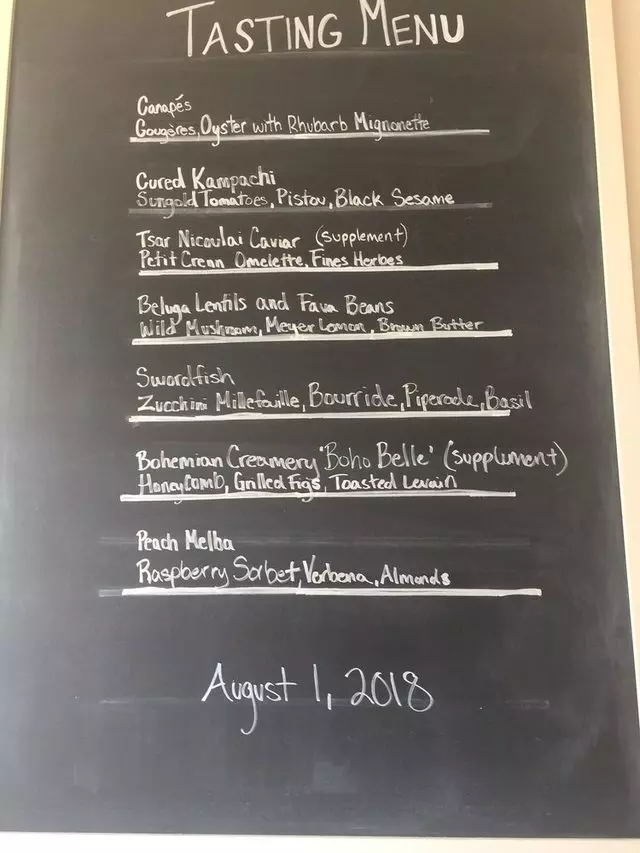 TASTING MENU
Canapés
Gougères, Oyster with Rhubarb Mignonette
Cured Kampachi
Sungold Tomatoes, Pistou, Black Sesame
Tsar Nicoulai Caviar (supplement)
Petit Crenn Omelette, Fines Herbes
Beluga Lentils and Fava Beans
Wild Mushroom, Meyer Lemon, Brown Butter
Swordfish
Zucchini Millefeuille, Bourride, Piperade, Basil
Bohemian Creamery 'Boho Belle' (supplement)
Honeycomb, Grilled Figs, Toasted Levain
Peach Melba
Raspberry Sorbet, Verbena, Almonds
August 1, 2018